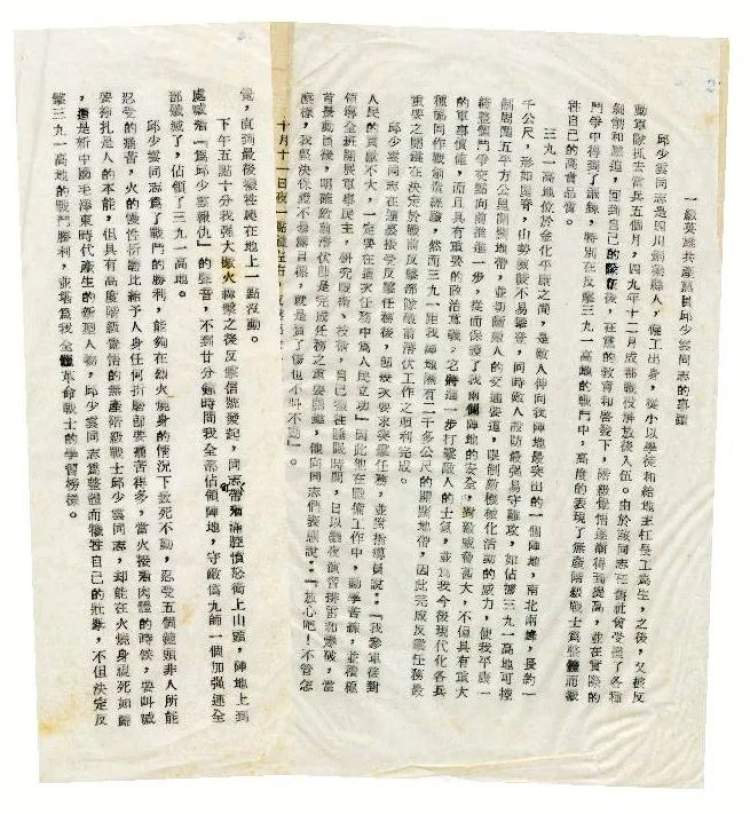 一級英雄共產黨員邱少雲同志的事蹟
邱少雲同志是四川銅梁縣人，僱工出身，從小以學徒和給地主扛長工為生，之後，又被反
動軍隊抓去當兵五個月，四九年十二月成都戰役解放後入伍。由於該同志在舊社會受盡了各種
剝削和壓迫，回到自己的隊伍後，在黨的教育和啓發下，階級覺悟逐漸得到提高，並在實際的
鬥爭中得到了鍛鍊，特別在反擊三九一高地的戰鬥中，高度的表現了無產階級戰士為整體而犧
牲自己的高貴品質。
三九一高地位於金化平康之間，是敵人伸向我陣地最突出的一個陣地，南北兩峰，長約一
千公尺，形如馬脊，山勢 不易攀登，同時敵人設防最强易守難攻，如佔領三九一高地可控
制周圍五平方公里開闊地帶，並切斷敵人的交通要道，限制敵機械化活動的威力，使我平康一
線整個鬥爭交點向前推進一步，從而保護了我兩側陣地的安全，對敵威脅甚大，不但具有重大
的軍事價值，而且具有重要的政治意義，它將進一步打擊敵人的士氣，並為我今後現代化各兵
種協同作戰創造經驗，然而三九一距我陣地隔有二千多公尺的開闊地帶，因此完成反擊任務最
重要之關鍵在決定於戰前反擊部隊敵前潛伏工作之順利完成。
邱少雲同志在連裏接受反擊任務後，即幾次要求突擊任務，並對指導員說：『我參軍後對
人民的貢獻不大，一定要在這次任務中為人民立功』因此他在戰備工作中，勤學苦練，並積極
領導全班開展軍事民主，研究戰術、技術，自己犧牲睡眠時間，日以繼夜演習排雷和爆破，當
首長動員後，明確敵前潛伏即是完成任務之重要關鍵，他向同志們表示說：『放心吧！不管怎
麼樣，我堅決保證不暴露目標，就是負了傷也不叫不動』。
十月十一日夜一點
覺，直到最後犧牲時在地上一點沒動。
下午五點十分我强大砲火轟擊之後反擊信號發起，同志們帶着滿腔憤恐衝上山頭，陣地上到
處喊着『為邱少雲報仇』的聲音，不到廿分鐘時間我全部佔領陣地，守敵僞九師一個加强連全
部殲滅了，佔領了三九一高地。
邱少雲同志為了戰鬥的勝利，能夠在烈火燒身的情況下致死不動，忍受五個鐘頭非人所能
忍受的痛苦，火的犧牲折磨比給予人身任何折磨都要痛苦得多，當火接觸肉體的時候，要叫喊
要掙扎是人的本能，但具有高度階級覺悟的無產階級戰士邱少雲同志，却能在火燒身視死如歸
，這是新中國毛澤東時代產生的新型人物，邱少雲同志為整體而犧牲自己的壯舉，不但決定反
擊三九一高地的戰鬥勝利，並堪為我全體革命戰士的學習榜樣。